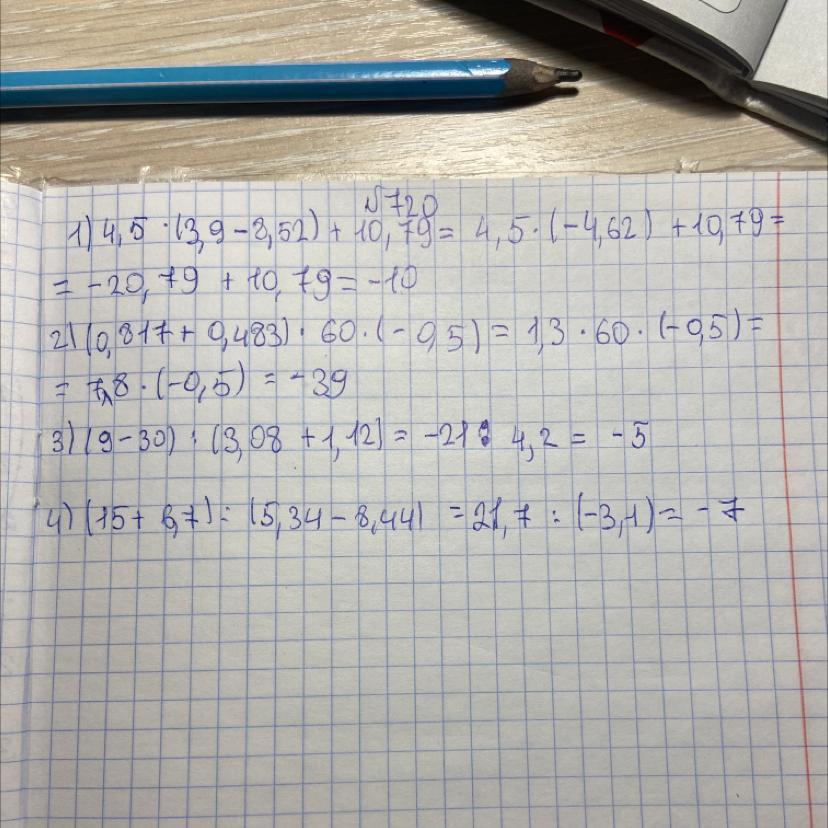 №720
1) 4,5 · (3,9 - 8,52) + 10,79 = 4,5 · (-4,62) + 10,79 =
= -20,79 + 10,79 = -10
2) (0,817 + 0,483) · 60 · (-0,5) = 1,3 · 60 · (-0,5) =
= 78 · (-0,5) = -39
3) (9 - 30) : (3,08 + 1,12) = -21 : 4,2 = -5
4) (15 + 6,7) : (5,34 - 8,44) = 21,7 : (-3,1) = -7